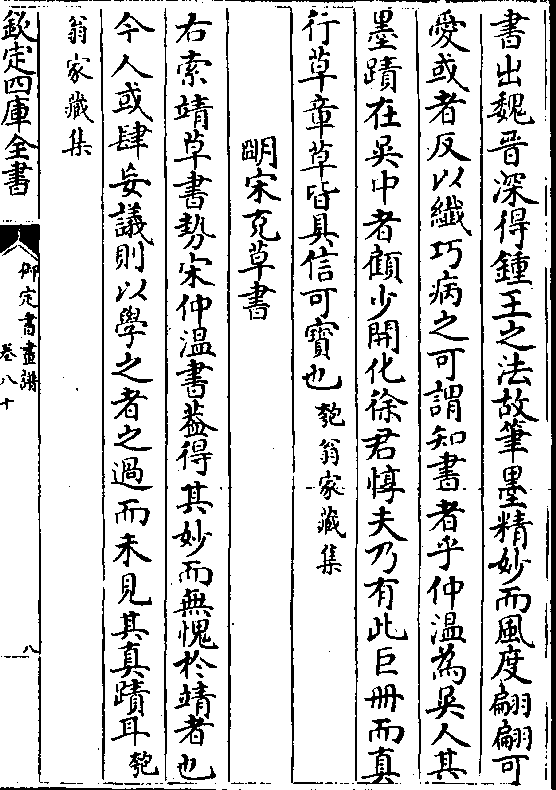 書出魏晉深得鍾王之法故筆墨精妙而風度翩翩可
愛或者反以纖巧病之可謂知書者乎仲溫為吳人其
墨蹟在吳中者顧少開化徐君惇夫乃有此巨冊而真
行草章草皆具信可寳也匏翁家藏集
明宋克草書
右索靖草書勢宋仲溫書葢得其妙而無愧於靖者也
今人或肆妄議則以學之者之過而未見其真蹟耳匏
翁家藏集
欽定四庫全書
御定書畫譜
卷八十
八